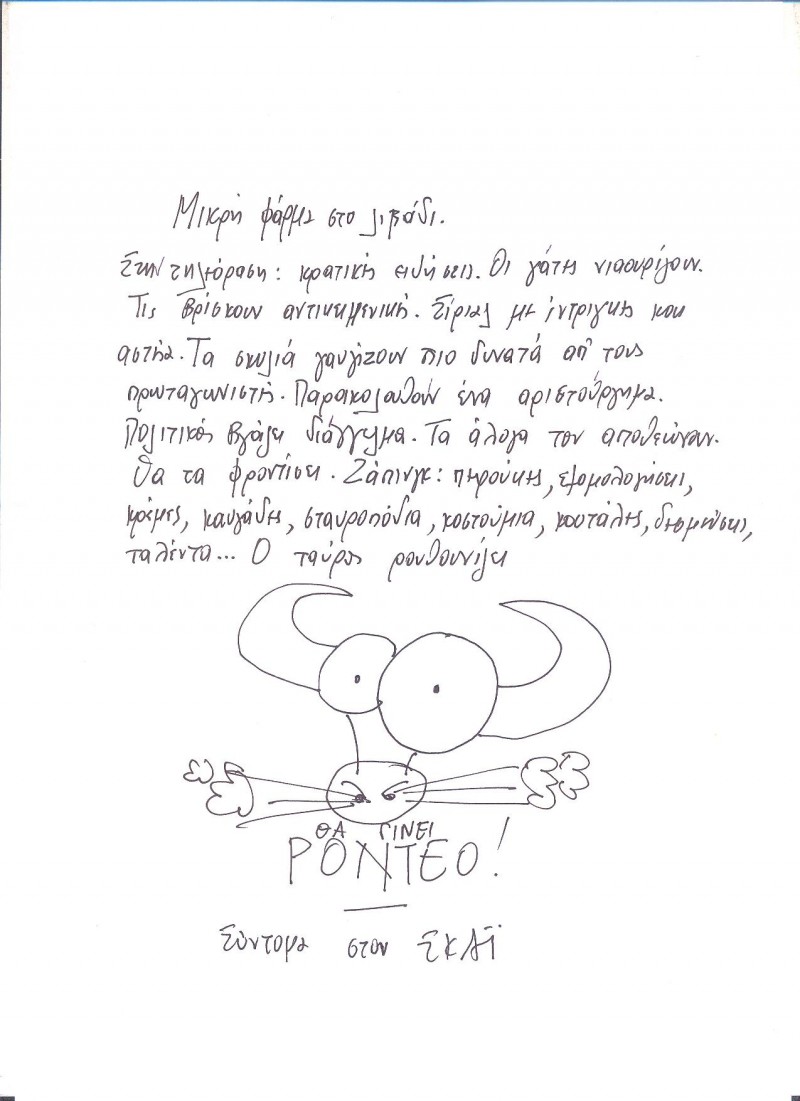 Μικρή φάρμα στο λιβάδι.
Στην τηλεόραση: κρατικές ειδήσεις. Οι γάτες νιαουρίζουν.
Τις βρίσκουν αντικειμενικές. Σίριαλ με ίντριγκες και
αστέρια. Τα σκυλιά γαυγίζουν πιο δυνατά απ' τους
πρωταγωνιστές. Παρακολουθούν ένα αριστούργημα.
Πολιτικός βγάζει διάγγελμα. Τα άλογα τον αποθεώνουν.
Θα τα φροντίσει. Ζάπινγκ: περούκες, εξομολογήσεις,
κρέμες, καυγάδες, σταυροπόδια, κοστούμια, κουτάλες, δεσμεύσεις,
ταλέντα... Ο ταύρος ρουθουνίζει
ΘΑ ΓΙΝΕΙ
ΡΟΝΤΕΟ!
Σύντομα στον ΣΚΑΪ